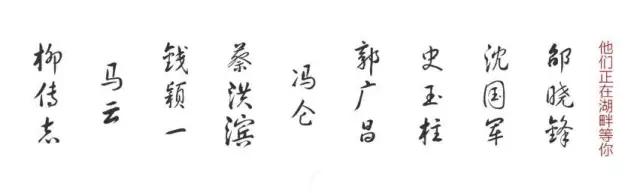 他们正在湖畔等你
邵晓锋
沈国军
史玉柱
郭广昌
冯仑
蔡洪滨
钱颖一
马云
柳传志